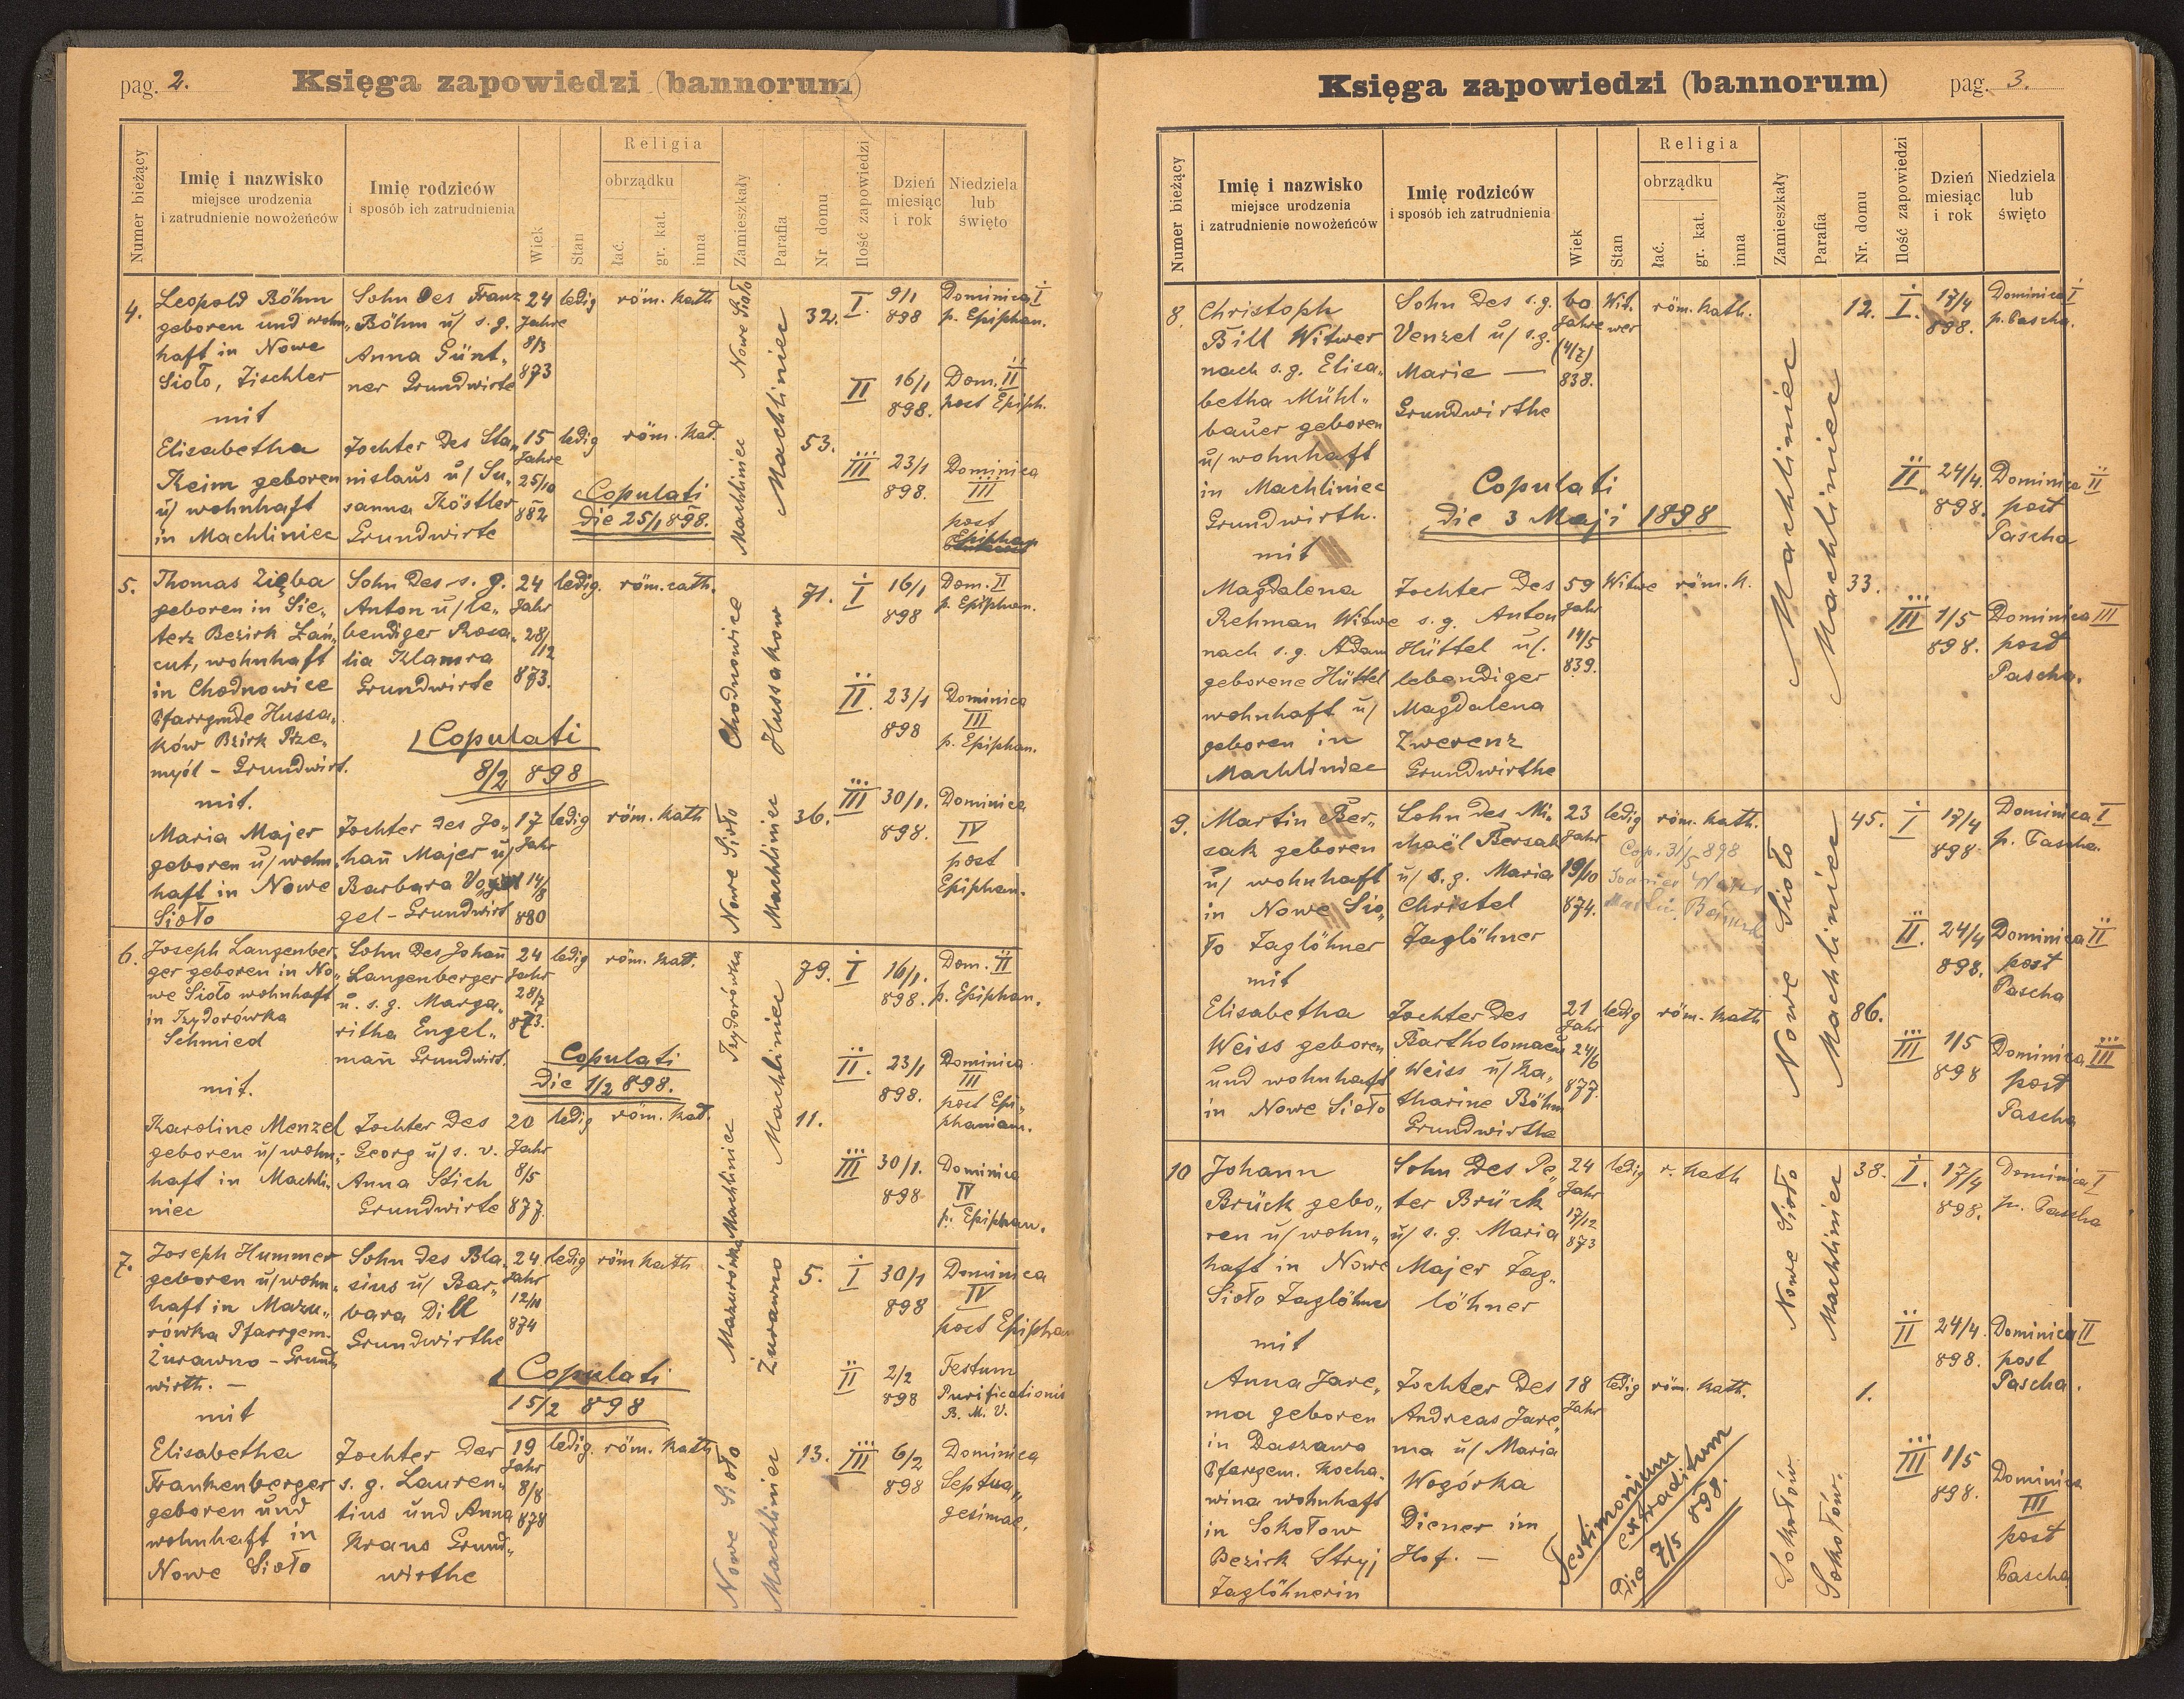 pag. 2.
Księga zapowiedzi (bannorum)
Numer bieżący
Imię i nazwisko
miejsce urodzenia
i zatrudnienie nowożeńców
Imię rodziców
i sposób ich zatrudnienia
Wiek
Stan
Religia
obrządku
łać.
gr. kat.
inna
Zamieszkały
Parafia
Nr domu
Ilość zapowiedzi
Dzień
miesiąc
i rok
Niedziela
lub
święto
4.
Leopold Böhm
geboren und wohn„
haft in Nowe
Sioło, Tischler
mit
Elisabetha
Keim geboren
u/ wohnhaft
in Machliniec
Sohn des Franz
Böhm u/ s. g.
Anna Günt„
ner Grundwirte
Tochter des Sta„
nislaus u/ Su„
sanna Köstler
Grundwirte
24
Jahre
8/3
873
15
Jahre
25/10
882
ledig
röm. kath
ledig
röm. kat.
Copulati
die 25/1 898.
Nowe Sioło
Machliniec
Machliniec
32.
53.
I.
9/1
898
Dominica I
p. Epiphan.
II
16/1
898.
Dom. II
post Epiph.
III
23/1
898.
Dominica
III
post
Epiphan
5.
Thomas Zięba
geboren in Sie„
terz Bezirk Łań„
cut, wohnhaft
in Chodnowice
Pfarrgmde Hussa„
ków Bzirk Prze„
myśl - Grundwirt.
mit.
Maria Majer
geboren u/ wohn„
haft in Nowe
Sioło
Sohn des s. g.
Anton u/ le„
bendiger Rosa„
lia Klamra
Grundwirte
Copulati
8/2 898
Tochter des Jo„
han̄ Majer u/
Barbara Vo
gel - Grundwirt
24
Jahr
28/12
873.
17
Jahr
14/8
880
ledig.
röm. cath.
ledig
röm. kath
Chodnowice
Hussakow
Nowe Sioło
Machliniec
71.
36.
I
16/1
898
Dom. II
p. Epiphan.
II.
23/1
898
Dominica
III
p. Epiphan.
III
30/1.
898.
Dominica
IV
post
Epiphan.
6.
Joseph Langenber„
ger geboren in No„
we Sioło wohnhaft
in Izydorówka
Schmied
mit.
Karoline Menzel
geboren u/ wohn„
haft in Machli„
niec
Sohn des Johan̄
Langenberger
u. s. g. Marga„
ritha Engel„
man̄ Grundwirt.
Tochter des
Georg u/ s. v.
Anna Stich
Grundwirte
24
Jahr
28/7
873.
20
Jahr
8/5
877.
ledig
röm. kat.
Copulati
die 1/2 898.
ledig
röm. kat.
Izydorówka
Machliniec
Machliniec
79.
11.
I
16/1.
898.
Dom. II
p. Epiphan.
II.
23/1
898.
Dominica
III
post Epi„
phaniam.
III
30/1.
898
Dominica
IV
p. Epiphan.
7.
Joseph Hummer
geboren u/ wohn„
haft in Mazu„
rówka Pfarrgem.
Żurawno - Grund„
wirth. —
mit
Elisabetha
Frankenberger
geboren und
wohnhaft in
Nowe Sioło
Sohn des Bla„
sius u/ Bar„
bara Dill
Grundwirthe
Copulati
15/2 898
Tochter der
s. g. Lauren„
tius und Anna
Kraus Grund„
wirthe
24
Jahr
874
19
Jahr
8/8
878
ledig
röm kath
ledig.
röm. kath
Mazurówka
Żurawno
Nowe Sioło
Machliniec
5.
13.
I
30/1
898
Dominica
IV
post Epiphan
II
2/2
898
Festum
Purificationis
B. M. V.
III
6/2
898
Dominica
Septua„
gesimae.
Księga zapowiedzi (bannorum)
pag. 3.
Numer bieżący
Imię i nazwisko
miejsce urodzenia
i zatrudnienie nowożeńców
Imię rodziców
i sposób ich zatrudnienia
Wiek
Stan
Religia
obrządku
łać.
gr. kat.
inna
Zamieszkały
Parafia
Nr. domu
Ilość zapowiedzi
Dzień
miesiąc
i rok
Niedziela
lub
święto
8.
Christoph
Bill Witwer
nach s. g. Elisa„
betha Mühl„
bauer geboren
u/ wohnhaft
in Machliniec
Grundwirth.
mit
Magdalena
Rehman Witwe
nach s. g. Adam
geborene Hüttel
wohnhaft u/
geboren in
Machliniec
Sohn des s. g.
Venzel u/ s. g.
Marie —
Grundwirthe
Copulati
die 3 Maji 1898
Tochter des
s. g. Anton
Hüttel u/.
lebendiger
Magdalena
Zwerenz
Grundwirthe
60
Jahre
(4/7)
838.
59
Jahr
14/5
839.
Wit„
wer
röm. kath.
Witwe
röm. k.
Machliniec
Machliniec
12.
33.
I.
17/4
898.
Dominica I
p. Pascha.
II.
24/4.
898.
Dominica II
post
Pascha
III
1/5
898.
Dominica III
post
Pascha.
9.
Martin Ber„
sak geboren
u/ wohnhaft
in Nowe Sio„
ło Taglöhner
mit
Elisabetha
Weiss geboren
und wohnhaft
in Nowe Sioło
Sohn des Mi„
chaël Bersak
u/ s. g. Maria
Christel
Taglöhner
Tochter des
Bartholomaeus
Weiss u/ Ka„
tharine Böhm
Grundwirthe
23
Jahr
19/10
874.
21
Jahr
24/6
877.
ledig
röm. kath.
Cop. 31/5 898
ledig
röm. kath
Nowe Sioło
Machliniec
45.
86.
I
17/4
898
Dominica I
p. Pascha.
II.
24/4
898.
Dominica II
post
Pascha
III
1/5
898
Dominica III
post
Pascha
10
Johann
Brück gebo„
ren u/ wohn„
haft in Nowe
Sioło Taglöhner
mit
Anna Jare„
ma geboren
in Daszawa
Pfarrgem. Kocha„
wina wohnhaft
in Sokołow
Bezirk Stryj
Taglöhnerin
Sohn des Pe„
ter Brück
u/ s. g. Maria
Majer Tag„
löhner
Tochter des
Andreas Jare„
ma u/ Maria
Wogórka
Diener im
Hof. —
24
Jahr
17/12
873
18
Jahr
ledig
r. kath
ledig
röm. kath.
Testimonium
extraditum
Die 7/5 898.
Nowe Sioło
Machliniec
Sokołów.
Sokołów.
38.
1.
I.
17/4
898.
Dominica I
p. Pascha
II
24/4.
898.
Dominica II
post
Pascha.
III
1/5
898.
Dominica
III
post
Pascha